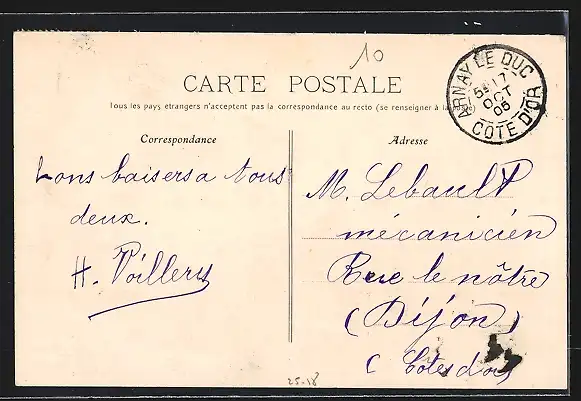 10
CARTE POSTALE
Tous les pays étrangers n'acceptent pas la correspondance au recto (se renseigner à la poste)
ARNAY LE DUC
17
OCT
06
COTE D'OR
Correspondance
Bons baisers a tous
deux.
H. Poillery
Adresse
M. Lebault
mécanicien
Rue le nôtre
(Dijon)
( Côtes d'or
25-18